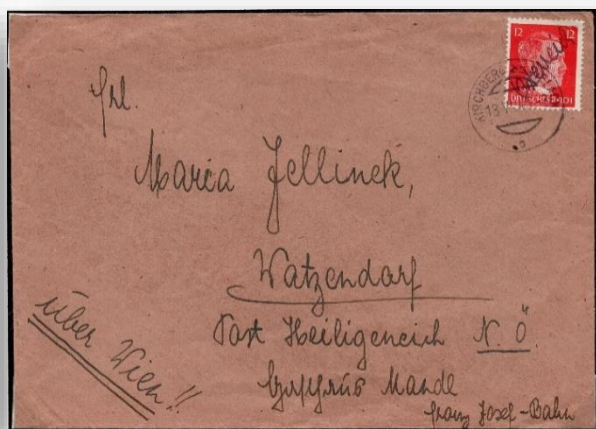 12 12
Österreich
DEUTSCHES REICH
KIRCHBERG
13.
a
Frl.
Maria Jellinek,
Watzendorf
Post Heiligeneich N.Ö.
Gasthaus Mandl
Franz Josef-Bahn
über Wien!!